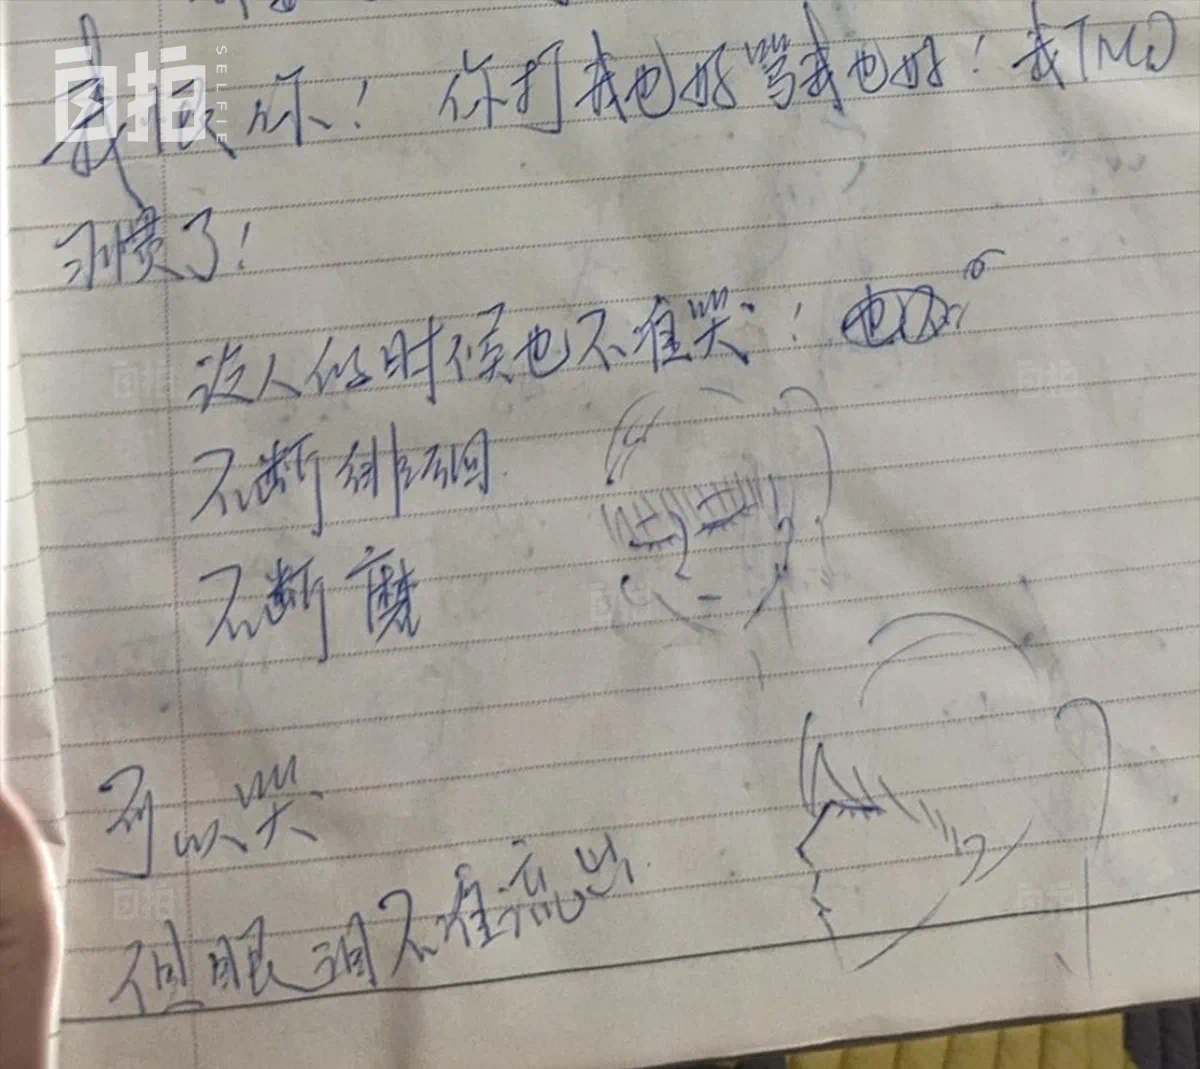 自拍
SELFIE
我恨你！你打我也好骂我也好！我TMD
习惯了！
没人的时候也不准哭！
不断徘徊
不断磨
可以哭
但眼泪不准流出